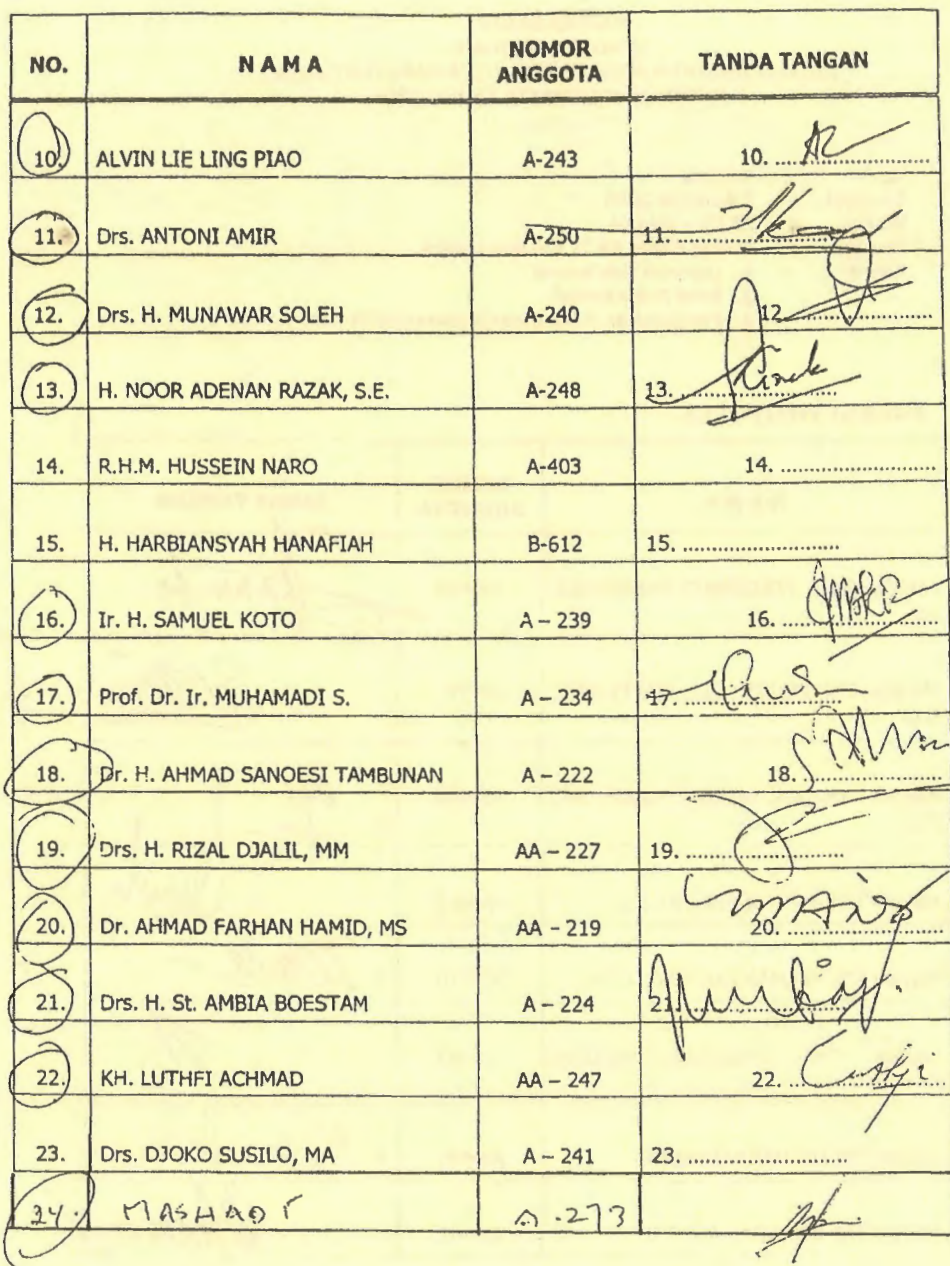 NO. NAMA NOMOR ANGGOTA TANDA TANGAN
10. ALVIN LIE LING PIAO A-243 10. ....................
11. Drs. ANTONI AMIR A-250 11. ....................
12. Drs. H. MUNAWAR SOLEH A-240 12. ....................
13. H. NOOR ADENAN RAZAK, S.E. A-248 13. ....................
14. R.H.M. HUSSEIN NARO A-403 14. ....................
15. H. HARBIANSYAH HANAFIAH B-612 15. ....................
16. Ir. H. SAMUEL KOTO A – 239 16. ....................
17. Prof. Dr. Ir. MUHAMADI S. A – 234 17. ....................
18. Dr. H. AHMAD SANOESI TAMBUNAN A – 222 18. ....................
19. Drs. H. RIZAL DJALIL, MM AA – 227 19. ....................
20. Dr. AHMAD FARHAN HAMID, MS AA – 219 20. ....................
21. Drs. H. St. AMBIA BOESTAM A – 224 21. ....................
22. KH. LUTHFI ACHMAD AA – 247 22. ....................
23. Drs. DJOKO SUSILO, MA A – 241 23. ....................
24. MASHADI A.273